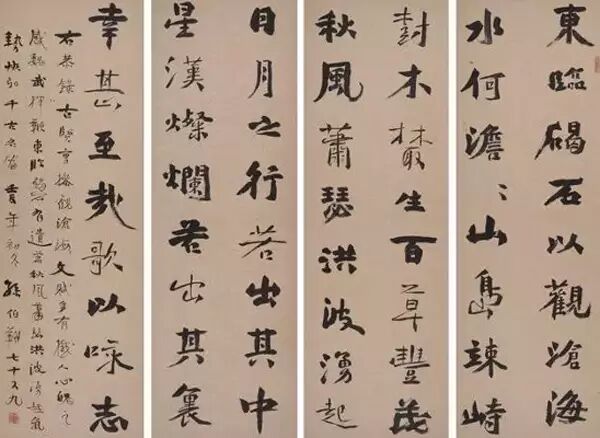 東臨碣石以觀滄海
水何澹〻山島竦峙
樹木叢生百草豐茂
秋風蕭瑟洪波湧起
日月之行若出其中
星漢燦爛若出其裏
幸甚至哉歌以詠志
右恭錄古賢曹操觀滄海文賦多有感人心魄之
感魏武揮鞭東臨碣石有遺篇秋風蕭瑟洪波湧起氣
勢恢弘千古 年初冬孫伯翔七十又九